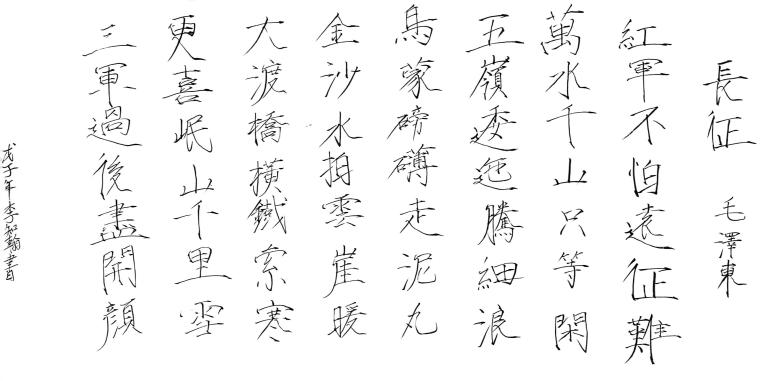 長征
毛澤東
紅軍不怕遠征難
萬水千山只等閑
五嶺逶迤騰細浪
烏蒙磅礴走泥丸
金沙水拍雲崖暖
大渡橋橫鐵索寒
更喜岷山千里雪
三軍過後盡開顏
戊子年李智翰書